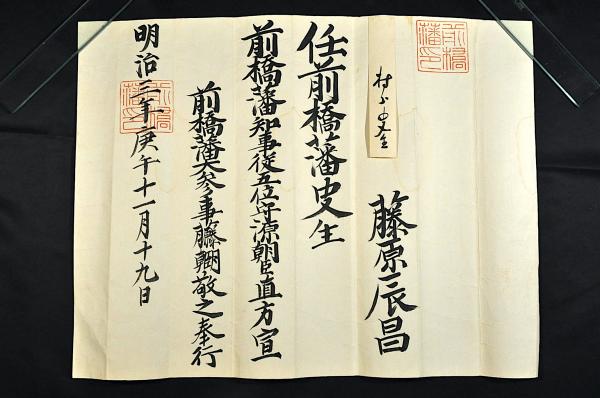 前橋藩印
藤原辰昌
任前橋藩史生
前橋藩知事従五位守源朝臣直方宣
前橋藩大参事藤朝敬之奉行
明治三年庚午十一月十九日
前橋藩印